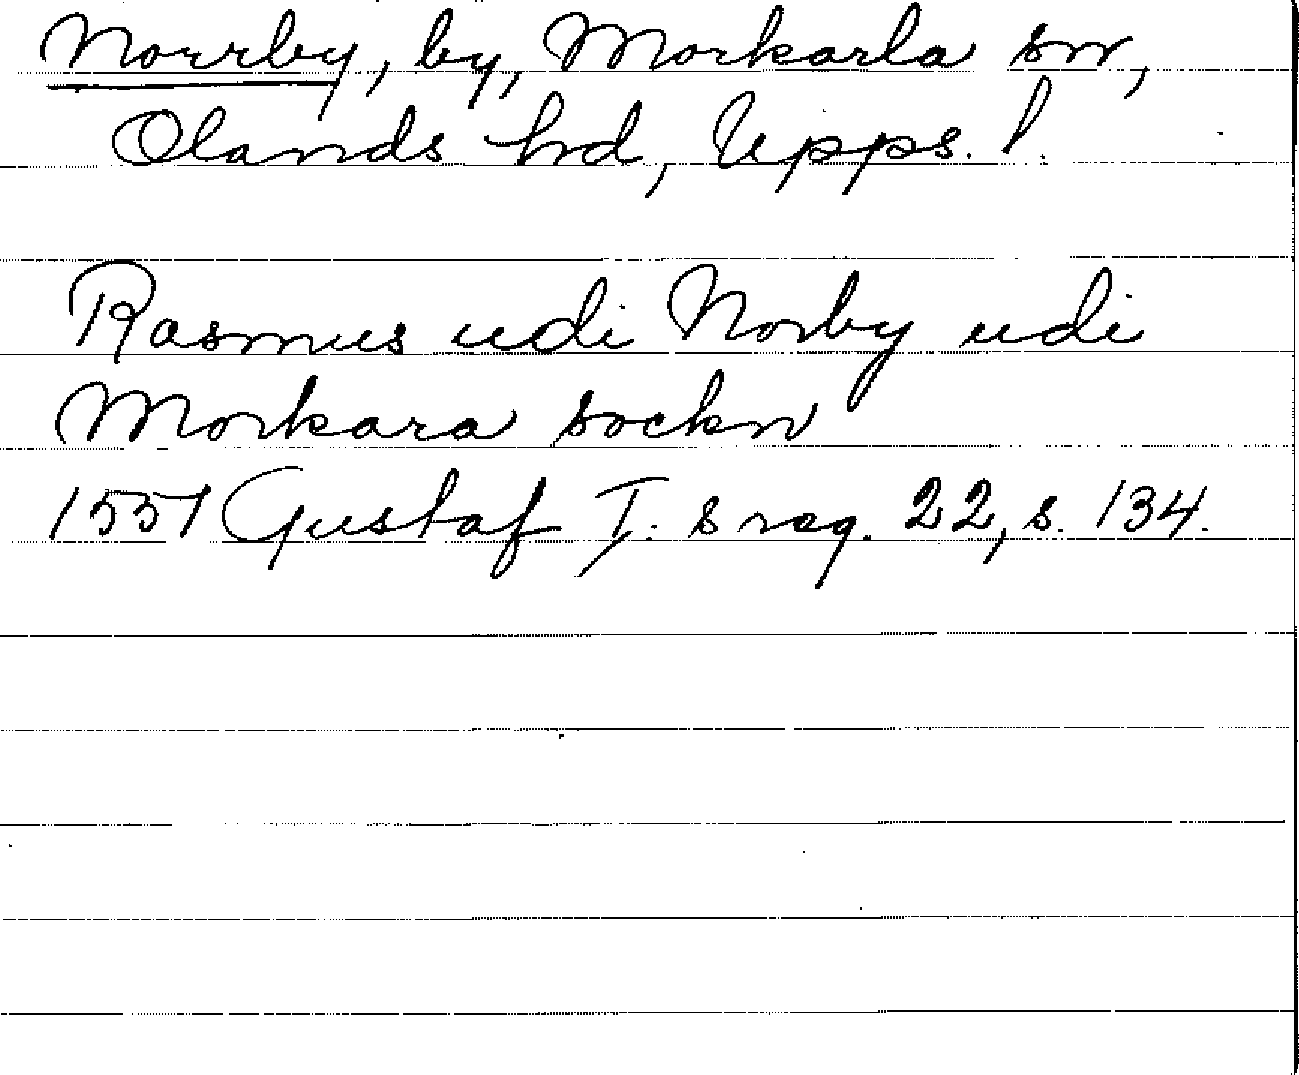 Norrby, by, Morkarla sn,
Olands hd, Upps. l.
Rasmus udi Norby udi
Morkara sockn
1551 Gustaf I:s reg. 22, s. 134.